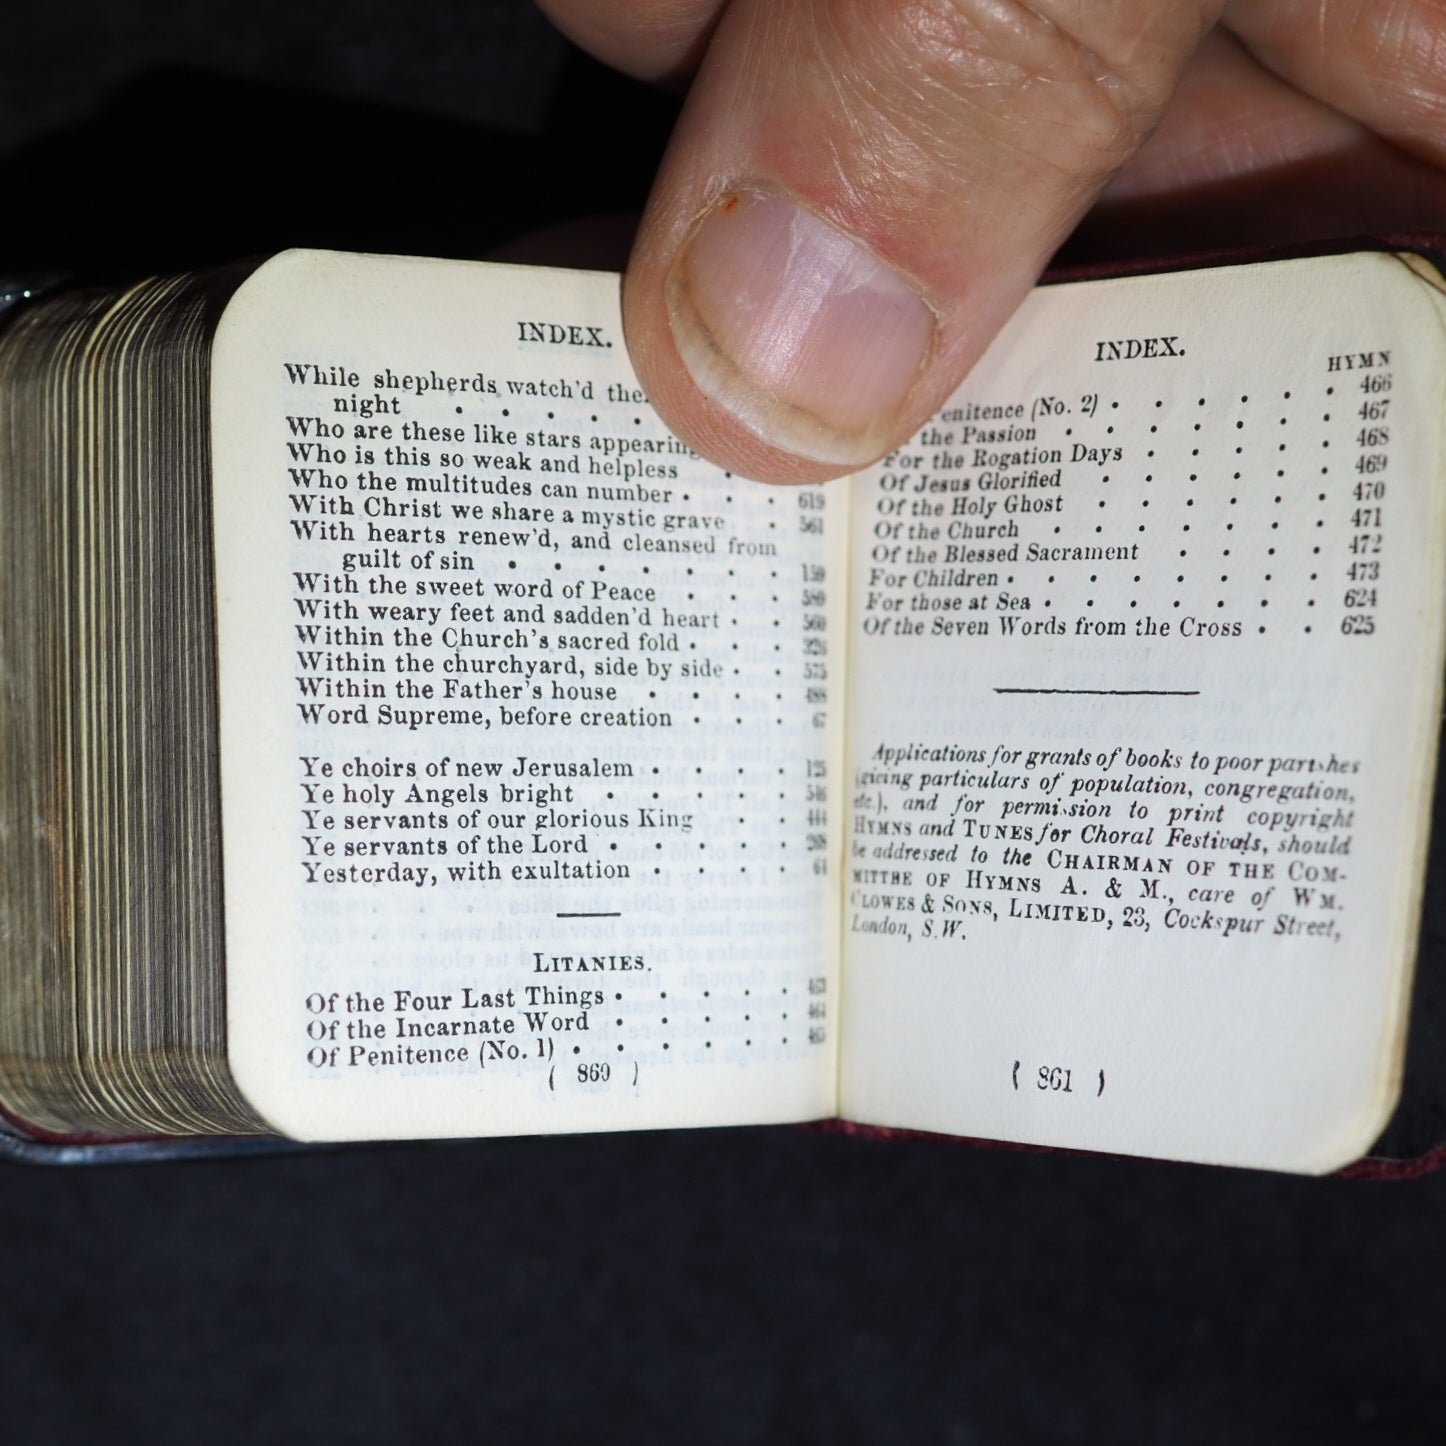 INDEX.
While shepherds watch'd
night . . . . .
Who are these like stars appearing
Who is this so weak and helpless .
Who the multitudes can number . . . 619
With Christ we share a mystic grave . 561
With hearts renew'd, and cleansed from
guilt of sin . . . . . . . 159
With the sweet word of Peace . . . 580
With weary feet and sadden'd heart . . 560
Within the Church's sacred fold . . .
Within the churchyard, side by side . . 575
Within the Father's house . . . . 488
Word Supreme, before creation . . . 67
Ye choirs of new Jerusalem . . . . 125
Ye holy Angels bright . . . . . 546
Ye servants of our glorious King . . 444
Ye servants of the Lord . . . . . 268
Yesterday, with exultation . . . . 64
LITANIES.
Of the Four Last Things . . . . . 463
Of the Incarnate Word . . . . . 464
Of Penitence (No. 1) . . . . . . 465
( 860 )
INDEX.
HYMN
Penitence (No. 2) . . . . . . 466
the Passion . . . . . . . 467
For the Rogation Days . . . . . 468
Of Jesus Glorified . . . . . . 469
Of the Holy Ghost . . . . . . 470
Of the Church . . . . . . . 471
Of the Blessed Sacrament . . . . 472
For Children . . . . . . . . 473
For those at Sea . . . . . . . 624
Of the Seven Words from the Cross . . 625
Applications for grants of books to poor parishes
(giving particulars of population, congregation,
etc.), and for permission to print copyright
HYMNS and TUNES for Choral Festivals, should
be addressed to the CHAIRMAN OF THE COM-
MITTEE OF HYMNS A. & M., care of WM.
CLOWES & SONS, LIMITED, 23, Cockspur Street,
London, S.W.
( 861 )